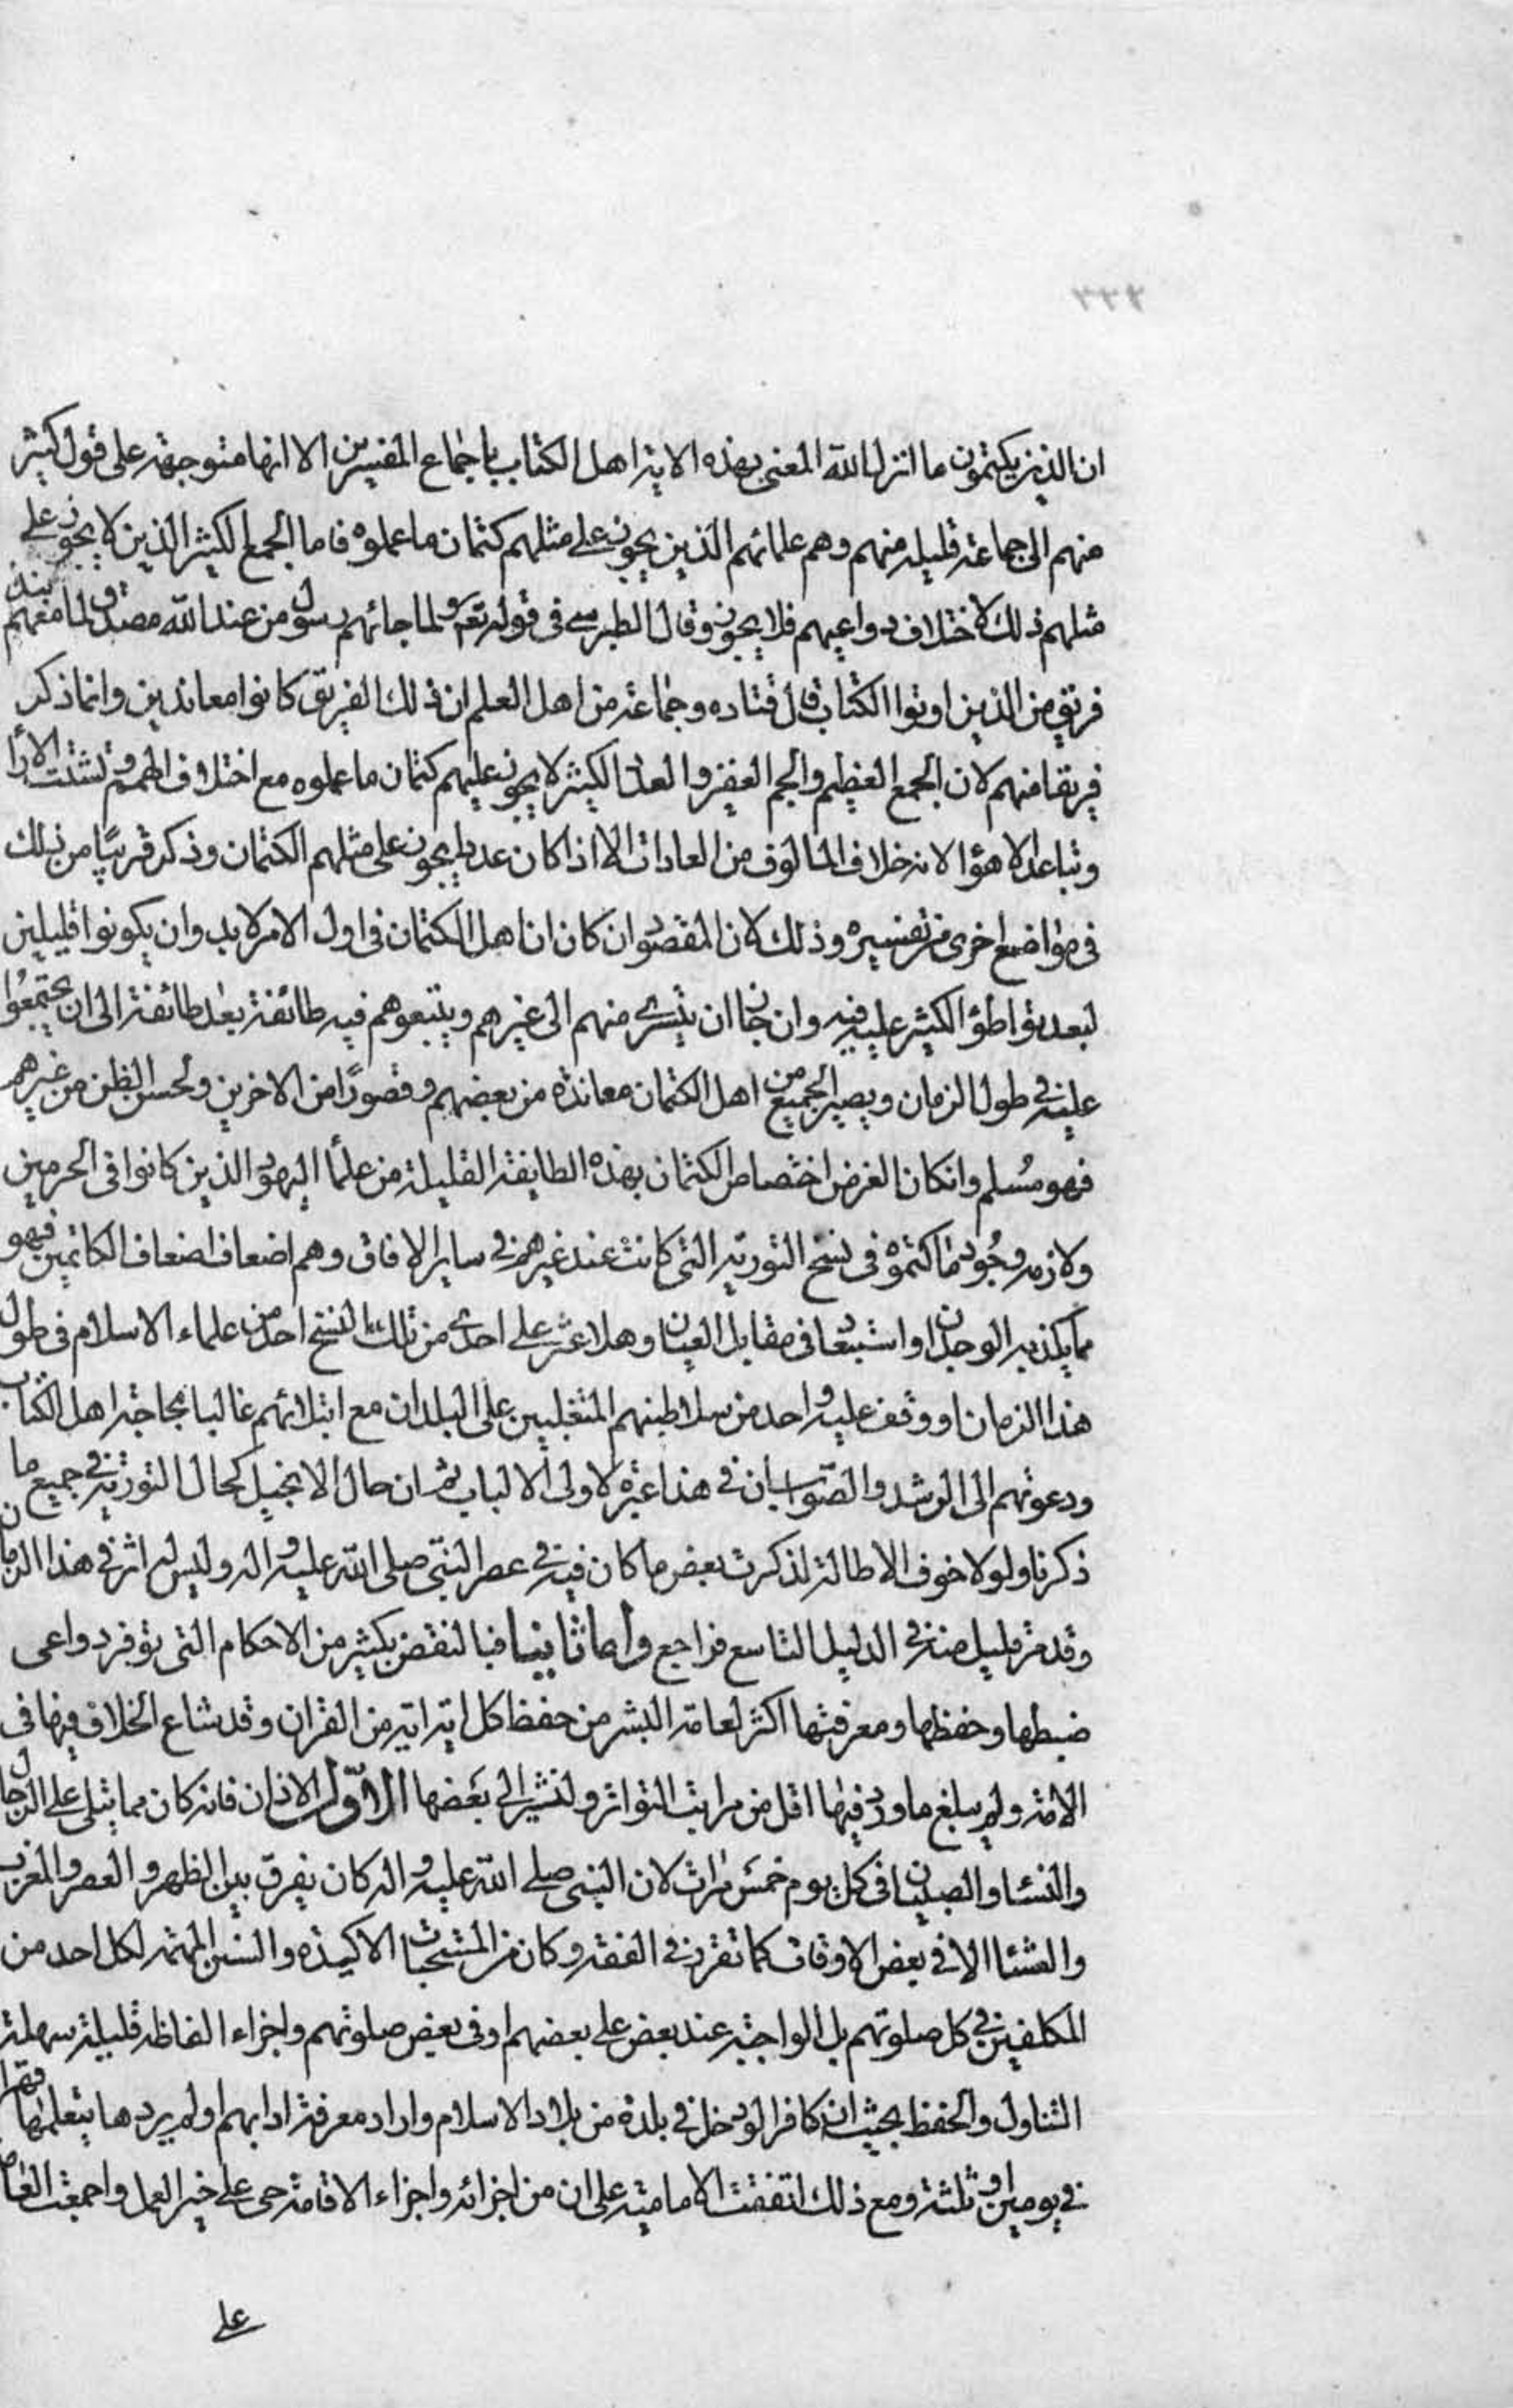 ٣٣٤
ان الذين يكتمون ما انزل الله المعنى بهذه الاية اهل الكتاب باجماع المفسرين الا انها متوجهة على قول كثير
منهم الى جماعة قليلة منهم وهم علمائهم الذين يجوز على مثلهم كتمان ما علموه فاما الجمع الكثير الذين لا يجوز على
مثلهم ذلك لاختلاف دواعيهم فلا يجوز وقال الطبرسي في قوله تعالى ولما جائهم رسول من عند الله مصدق لما معهم نبذ
فريق من الذين اوتوا الكتاب قال قتاده وجماعة من اهل العلم ان ذلك الفريق كانوا معاندين وانما ذكر
فريقا منهم لان الجمع العظيم والجم الغفير والعدد الكثير لا يجوز عليهم كتمان ما علموه مع اختلاف الهمم وتشتت الاراء
وتباعد الاهواء لانه خلاف المالوف من العادات الا اذا كان عددا يجوز على مثلهم الكتمان وذكر قريبا من ذلك
في مواضع اخرى من تفسيره وذلك لان المقصود ان كان ان اهل الكتمان في اول الامر لا بد وان يكونوا قليلين
لبعد تواطؤ الكثير عليه فيه وان جاز ان يسرى منهم الى غيرهم ويتبعوهم فيه طائفة بعد طائفة الى ان يجتمعوا
عليه في طول الزمان ويصير الجميع من اهل الكتمان معاندة من بعضهم وقصورًا من الاخرين ولحسن الظن من غيرهم
فهو مُسلم وانكان الغرض اختصاص الكتمان بهذه الطايفة القليلة من علماء اليهود الذين كانوا في الحرمين
ولازمه وجُود ما كتموه في نسخ التورية التي كانت عند غيرهم في ساير الافاق وهم اضعاف اضعاف الكاتمين فهو
مما يكذبه الوجدان او استبعاد في مقابل العيان وهلا عثر على احدى من تلك النسخ احد من علماء الاسلام في طول
هذا الزمان او وقف عليه واحد من سلاطينهم المتغلبين على البلدان مع ابتلائهم غالبا بمحاجة اهل الكتاب
ودعوتهم الى الرشد والصّواب ان في هذا عبرة لاولى الالباب ثم ان حال الانجيل كحال التورية في جميع ما
ذكرنا ولولا خوف الاطالة لذكرت بعض ما كان فيه في عصر النبّى صلى الله عليه واله وليس له اثر في هذا الزمان
وقد مر قليل منه في الدليل التاسع فراجع واما ثانيا فبالنقض بكثير من الاحكام التي توفر دواعى
ضبطها وحفظها ومعرفتها اكثر لعامة البشر من حفظ كل اية اية من القران وقد شاع الخلاف فيها في
الامة ولم يبلغ ما ورد فيها اقل من مراتب التواتر ولنشير الى بعضها الاوّل الاذان فانه كان مما يتلى على الرجال
والنساء والصبيان في كل يوم خمس مرات لان النبى صلى الله عليه واله كان يفرق بين الظهر والعصر والمغرب
والعشاء الا في بعض الاوقات كما تقرر في الفقه وكان من المستحبات الاكيدة والسنن المهمة لكل احد من
المكلفين في كل صلوتهم بل الواجبة عند بعض على بعضهم او في بعض صلوتهم واجزاء الفاظه قليلة سهلة
التناول والحفظ بحيث ان كافرا لو دخل في بلدة من بلاد الاسلام واراد معرفة ادابهم او لم يردها يتعلمها قهرا
في يومين او ثلثة ومع ذلك اتفقت الامامية على ان من اجزائه واجزاء الاقامة حى على خير العمل واجمعت العامة
على